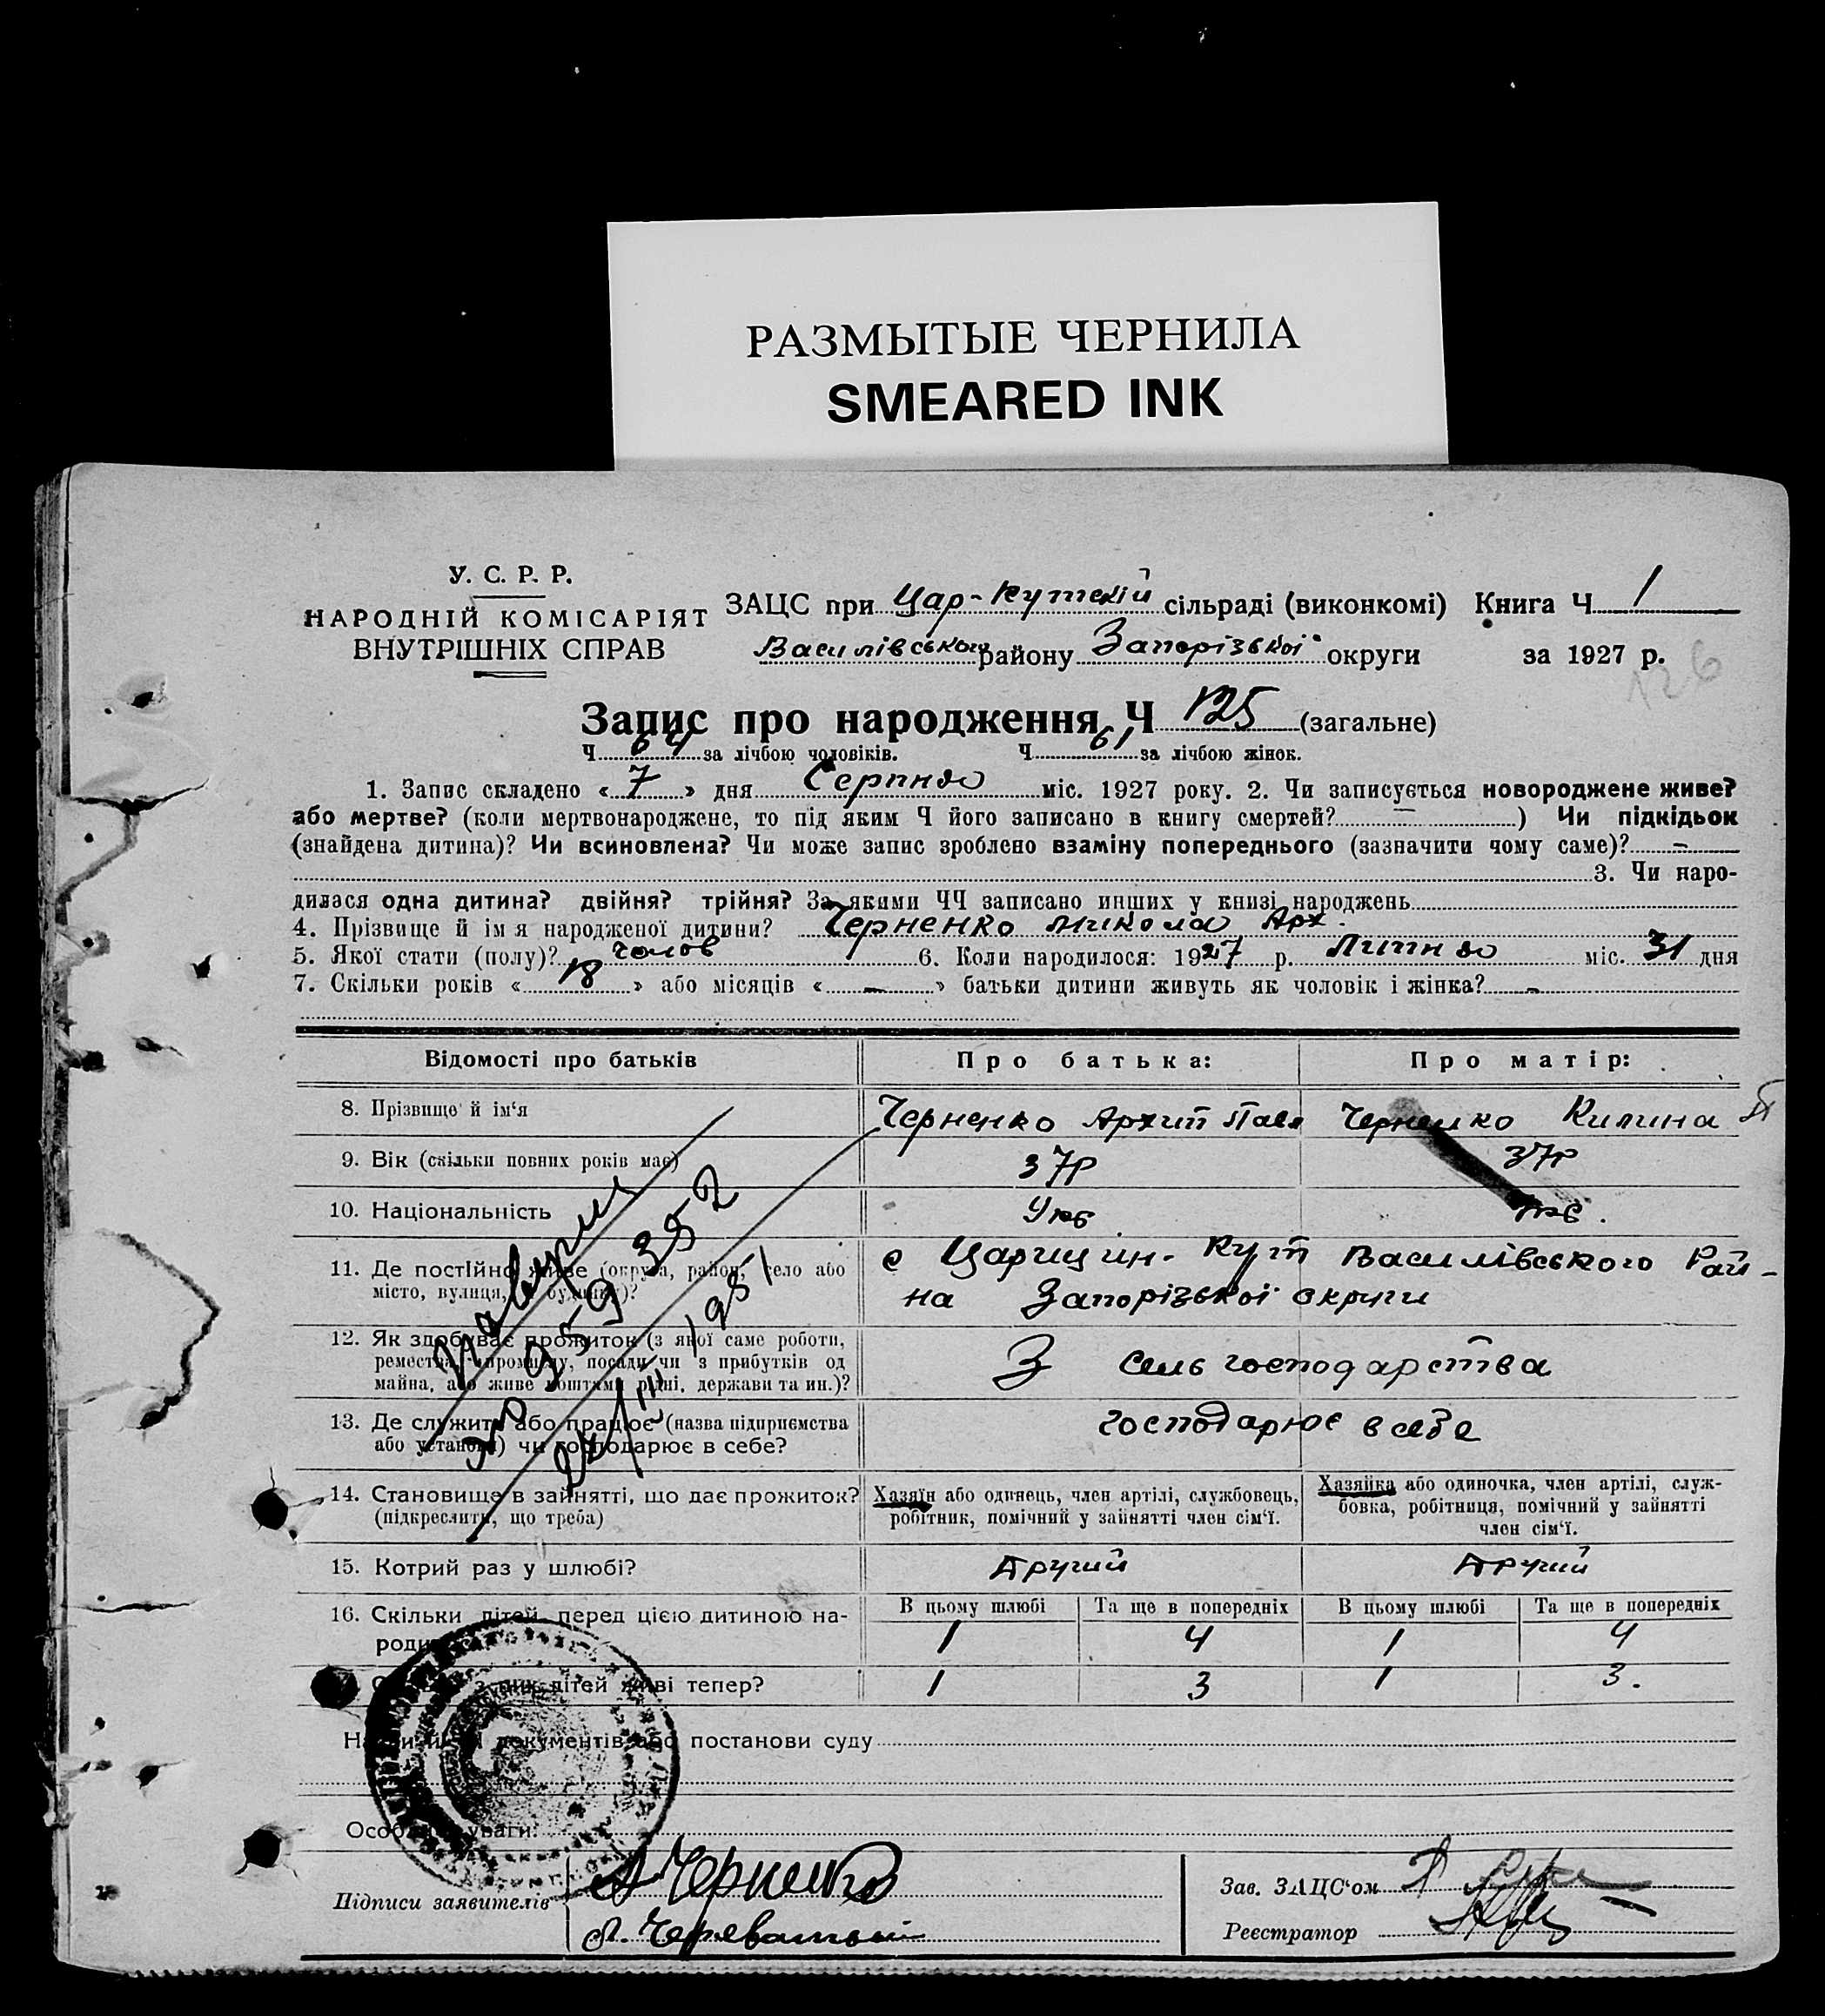 РАЗМЫТЫЕ ЧЕРНИЛА
SMEARED INK
У. С. Р. Р.
НАРОДНІЙ КОМІСАРІЯТ
ВНУТРІШНІХ СПРАВ
ЗАЦС при Цар-Кутській сільраді (виконкомі) Книга Ч 1
Василівського району Запорізької округи за 1927 р.
126
Запис про народження Ч 125 (загальне)
Ч 64 за лічбою чоловіків. Ч 61 за лічбою жінок.
1. Запис складено « 7 » дня Серпня міс. 1927 року. 2. Чи записується новороджене живе?
або мертве? (коли мертвонароджене, то під яким Ч його записано в книгу смертей? — ) Чи підкідьок
(знайдена дитина)? Чи всиновлена? Чи може запис зроблено взаміну попереднього (зазначити чому саме)? —
3. Чи наро-
дилася одна дитина? двійня? трійня? За якими ЧЧ записано инших у книзі народжень
4. Прізвище й ім я народженої дитини? Черненко Микола Арх.
5. Якої стати (полу)? чолов 6. Коли народилося: 1927 р. Липня міс. 31 дня
7. Скільки років « 18 » або місяців « — » батьки дитини живуть як чоловік і жінка? —
Відомості про батьків Про батька: Про матір:
8. Прізвище й ім‘я Черненко Архип Павл Черненко Килина П
9. Вік (скільки повних років має) 37р 37р
10. Національність Укр
11. Де постійно живе (округа, район, село або
місто, вулиця, будинку)?
с Царицин-Кут Василівського Рай-
на Запорізької округи
12. Як здобуває прожиток (з якої саме роботи,
ремества, промислу, посади чи з прибутків од
майна, або живе коштами рідні, держави та ин.)?
З сельгосподарства
13. Де служить або працює (назва підприємства
або установи) чи господарює в себе?
господарює в себе
959352
1951
14. Становище в зайнятті, що дає прожиток?
(підкреслити, що треба)
Хазяїн або одинець, член артілі, службовець,
робітник, помічний у зайнятті член сім‘ї.
Хазяйка або одиночка, член артілі, служ-
бовка, робітниця, помічний у зайнятті
член сім‘ї.
15. Котрий раз у шлюбі? Другий Другий
16. Скільки дітей перед цією дитиною на-
В цьому шлюбі Та ще в попередніх В цьому шлюбі Та ще в попередніх
1 4 1 4
з них дітей живі тепер? 1 3 1 3.
документів або постанови суду
Особливі уваги:
Підписи заявителів
А Черненко
Зав. ЗАЦС‘ом
Реєстратор